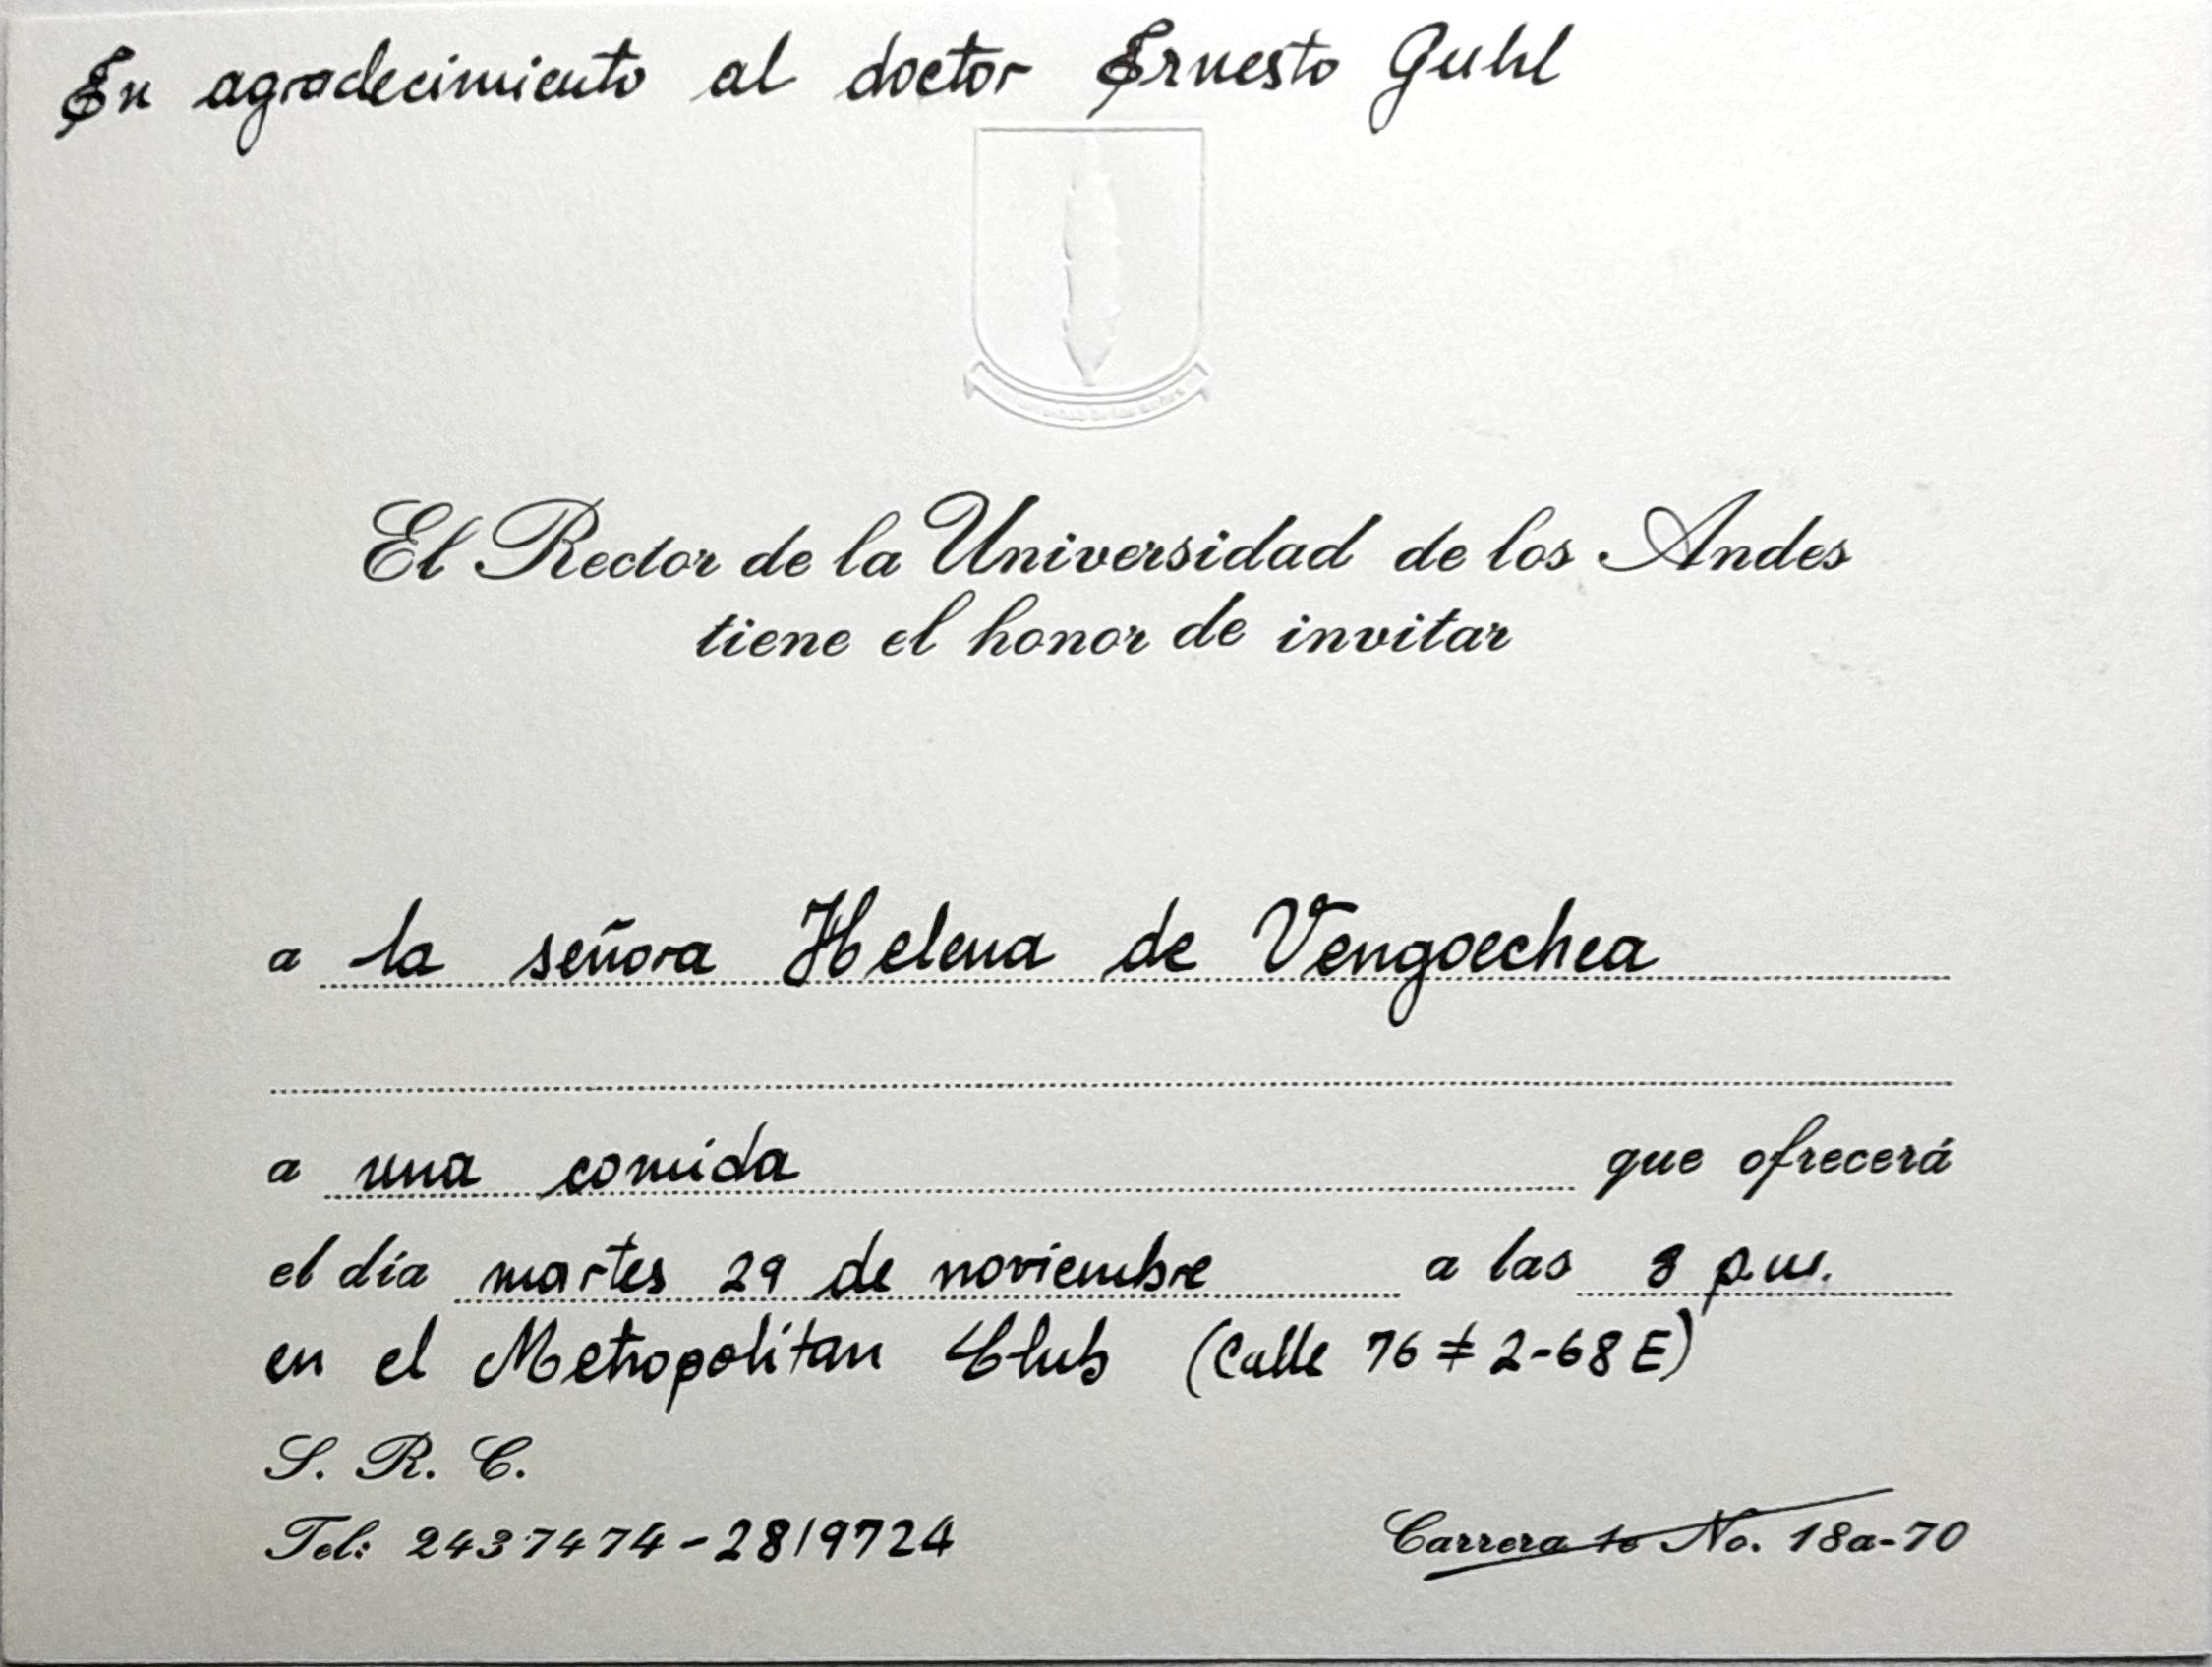 En agradecimiento al doctor Ernesto Guhl
El Rector de la Universidad de los Andes
tiene el honor de invitar
a la señora Helena de Vengoechea
a una comida que ofrecerá
el día martes 29 de noviembre a las 8 p.m.
en el Metropolitan Club (Calle 76 # 2-68 E)
S. R. C.
Tel: 2437474-2819724
Carrera 1e No. 18a-70